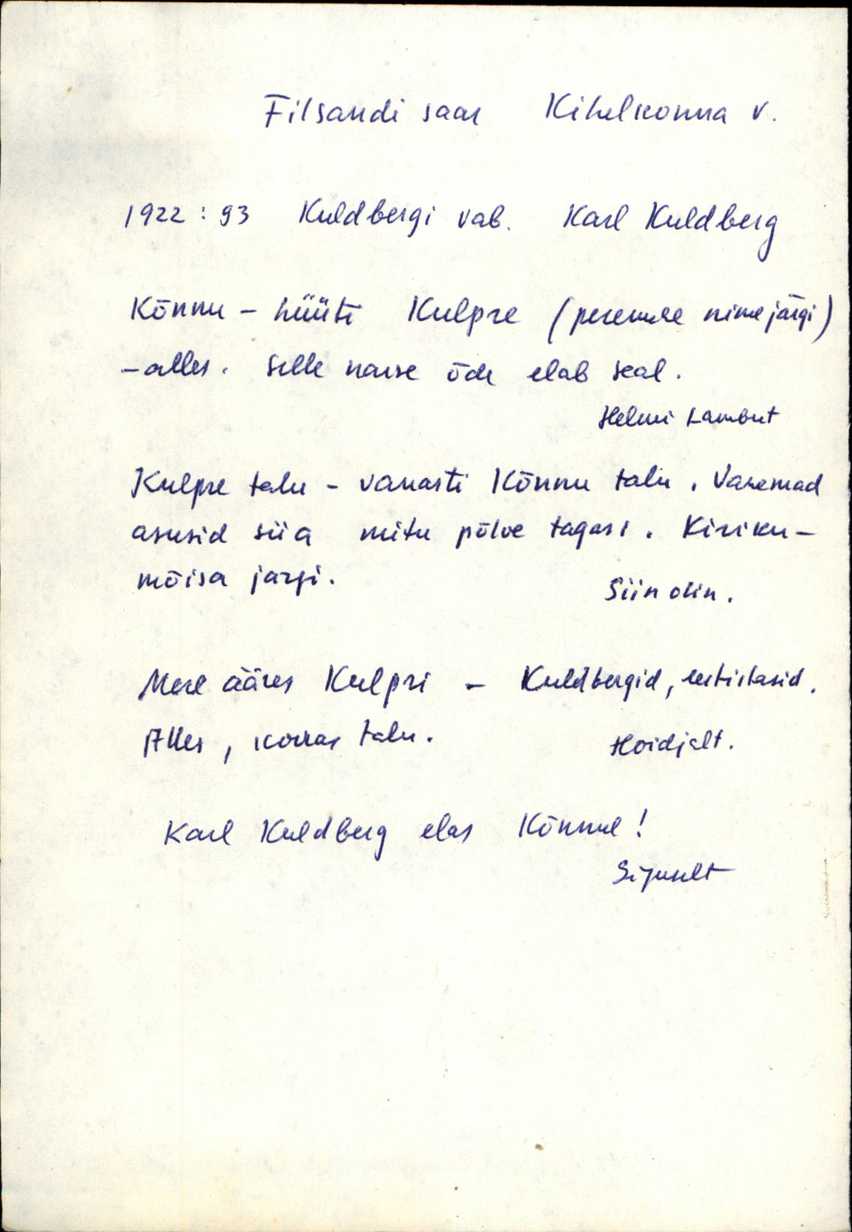 Filsandi saar Kihelkonna v.
1922:93 Kuldbergi vab. Karl Kuldberg
Kõnnu - hüüti Kulpre (peremehe nime järgi)
- alles. Selle naise õde elab seal.
Helmi Lambut
Kulpre talu - vanasti Kõnnu talu. Vanemad
asusid siia mitu põlve tagasi. Kiriku-
mõisa järgi.
Siin olin.
Mere ääres Kulpri - Kuldbergid, eestistasid.
Alles, korras talu.
Hoidjalt.
Karl Kuldberg elas Kõnnul!